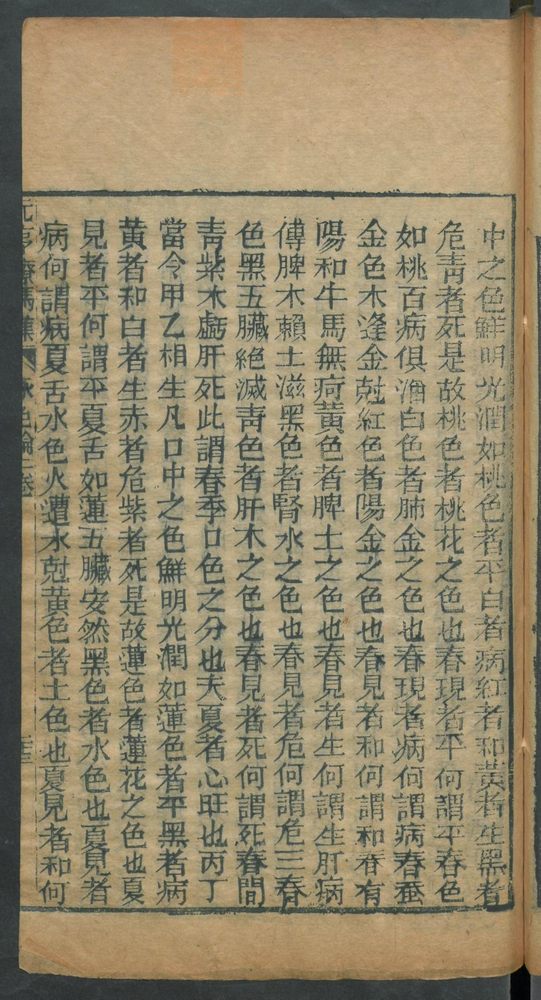 中之色鮮明光潤如桃色者平白者病紅者和黃者生黑者
危靑者死是故桃色者桃花之色也春現者平何謂平春色
如桃百病俱消白色者肺金之色也春現者病何謂病春蚕
金色木逢金尅紅色者陽金之色也春見者和何謂和春有
陽和牛馬無疴黃色者脾土之色也春見者生何謂生肝病
傳脾木賴土滋黑色者腎水之色也春見者危何謂危三春
色黑五臟絕滅靑色者肝木之色也春見者死何謂死春間
靑紫木虧肝死此謂春季口色之分也夫夏者心旺也丙丁
當令甲乙相生凡口中之色鮮明光潤如蓮色者平黑者病
黃者和白者生赤者危紫者死是故蓮色者蓮花之色也夏
見者平何謂平夏舌如蓮五臟安然黑色者水色也夏見者
病何謂病夏舌水色火遭水尅黃色者土色也夏見者和何
元亨療馬集 脉色論 一卷